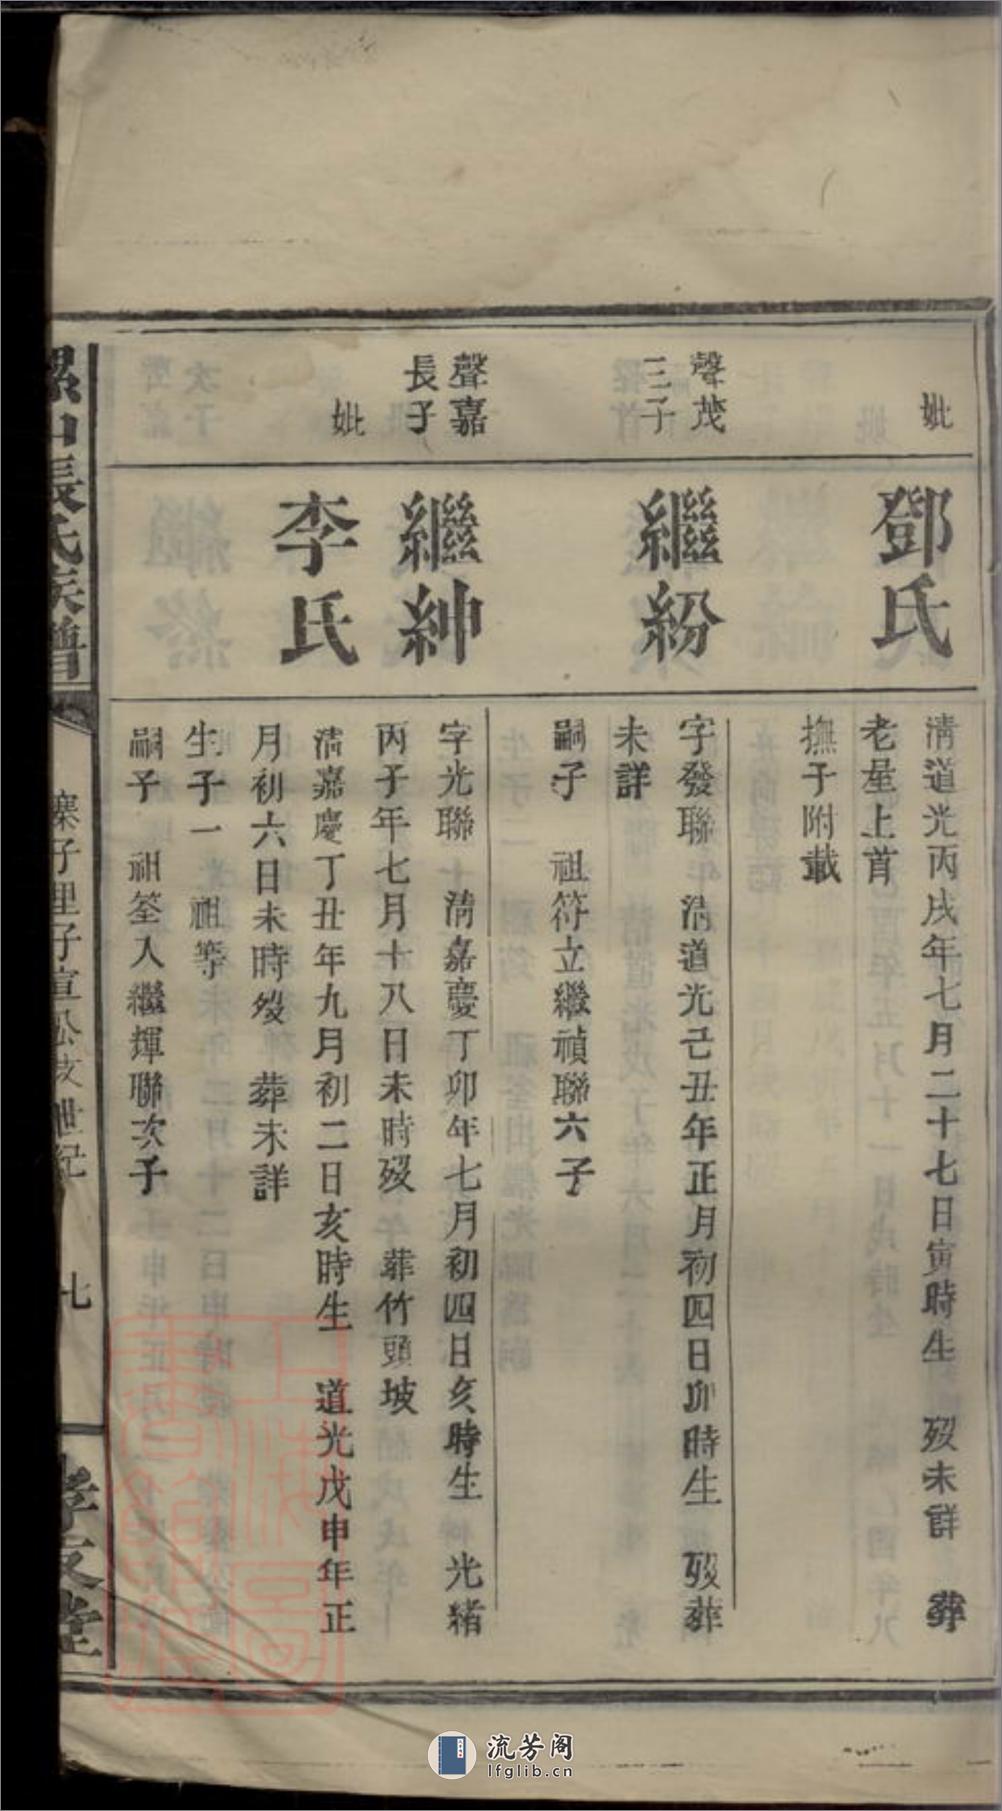 妣
鄧氏
清道光丙戌年七月二十七日寅時生 歿未詳 葬
老星上首
撫子附載
聲茂
三子
繼紛
字發聯 清道光己丑年正月初四日卯時生 歿葬
未詳
嗣子 祖符立繼禎聯六子
聲嘉
長子
繼紳
字光聯 清嘉慶丁卯年七月初四日亥時生 光緒
丙子年七月十八日未時歿 葬竹頭坡
妣
李氏
清嘉慶丁丑年九月初二日亥時生 道光戊申年正
月初六日未時歿 葬未詳
生子一 祖等
嗣子 祖筌入繼輝聯次子
張氏族譜
寨子里子宣公支世紀
七
孝友堂
上海圖書館藏
流芳阁
lfglib.cn